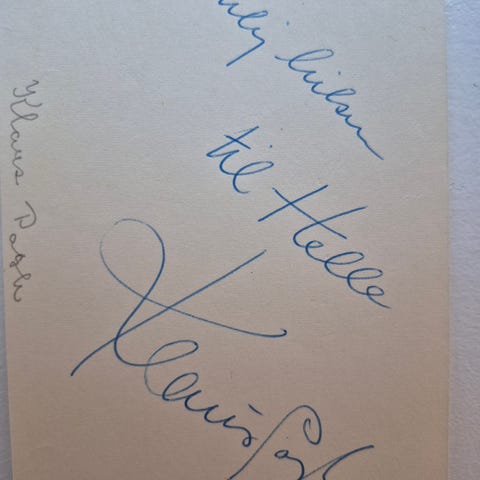 hilsen
til Helle
Klaus Pagh
Klaus Pagh